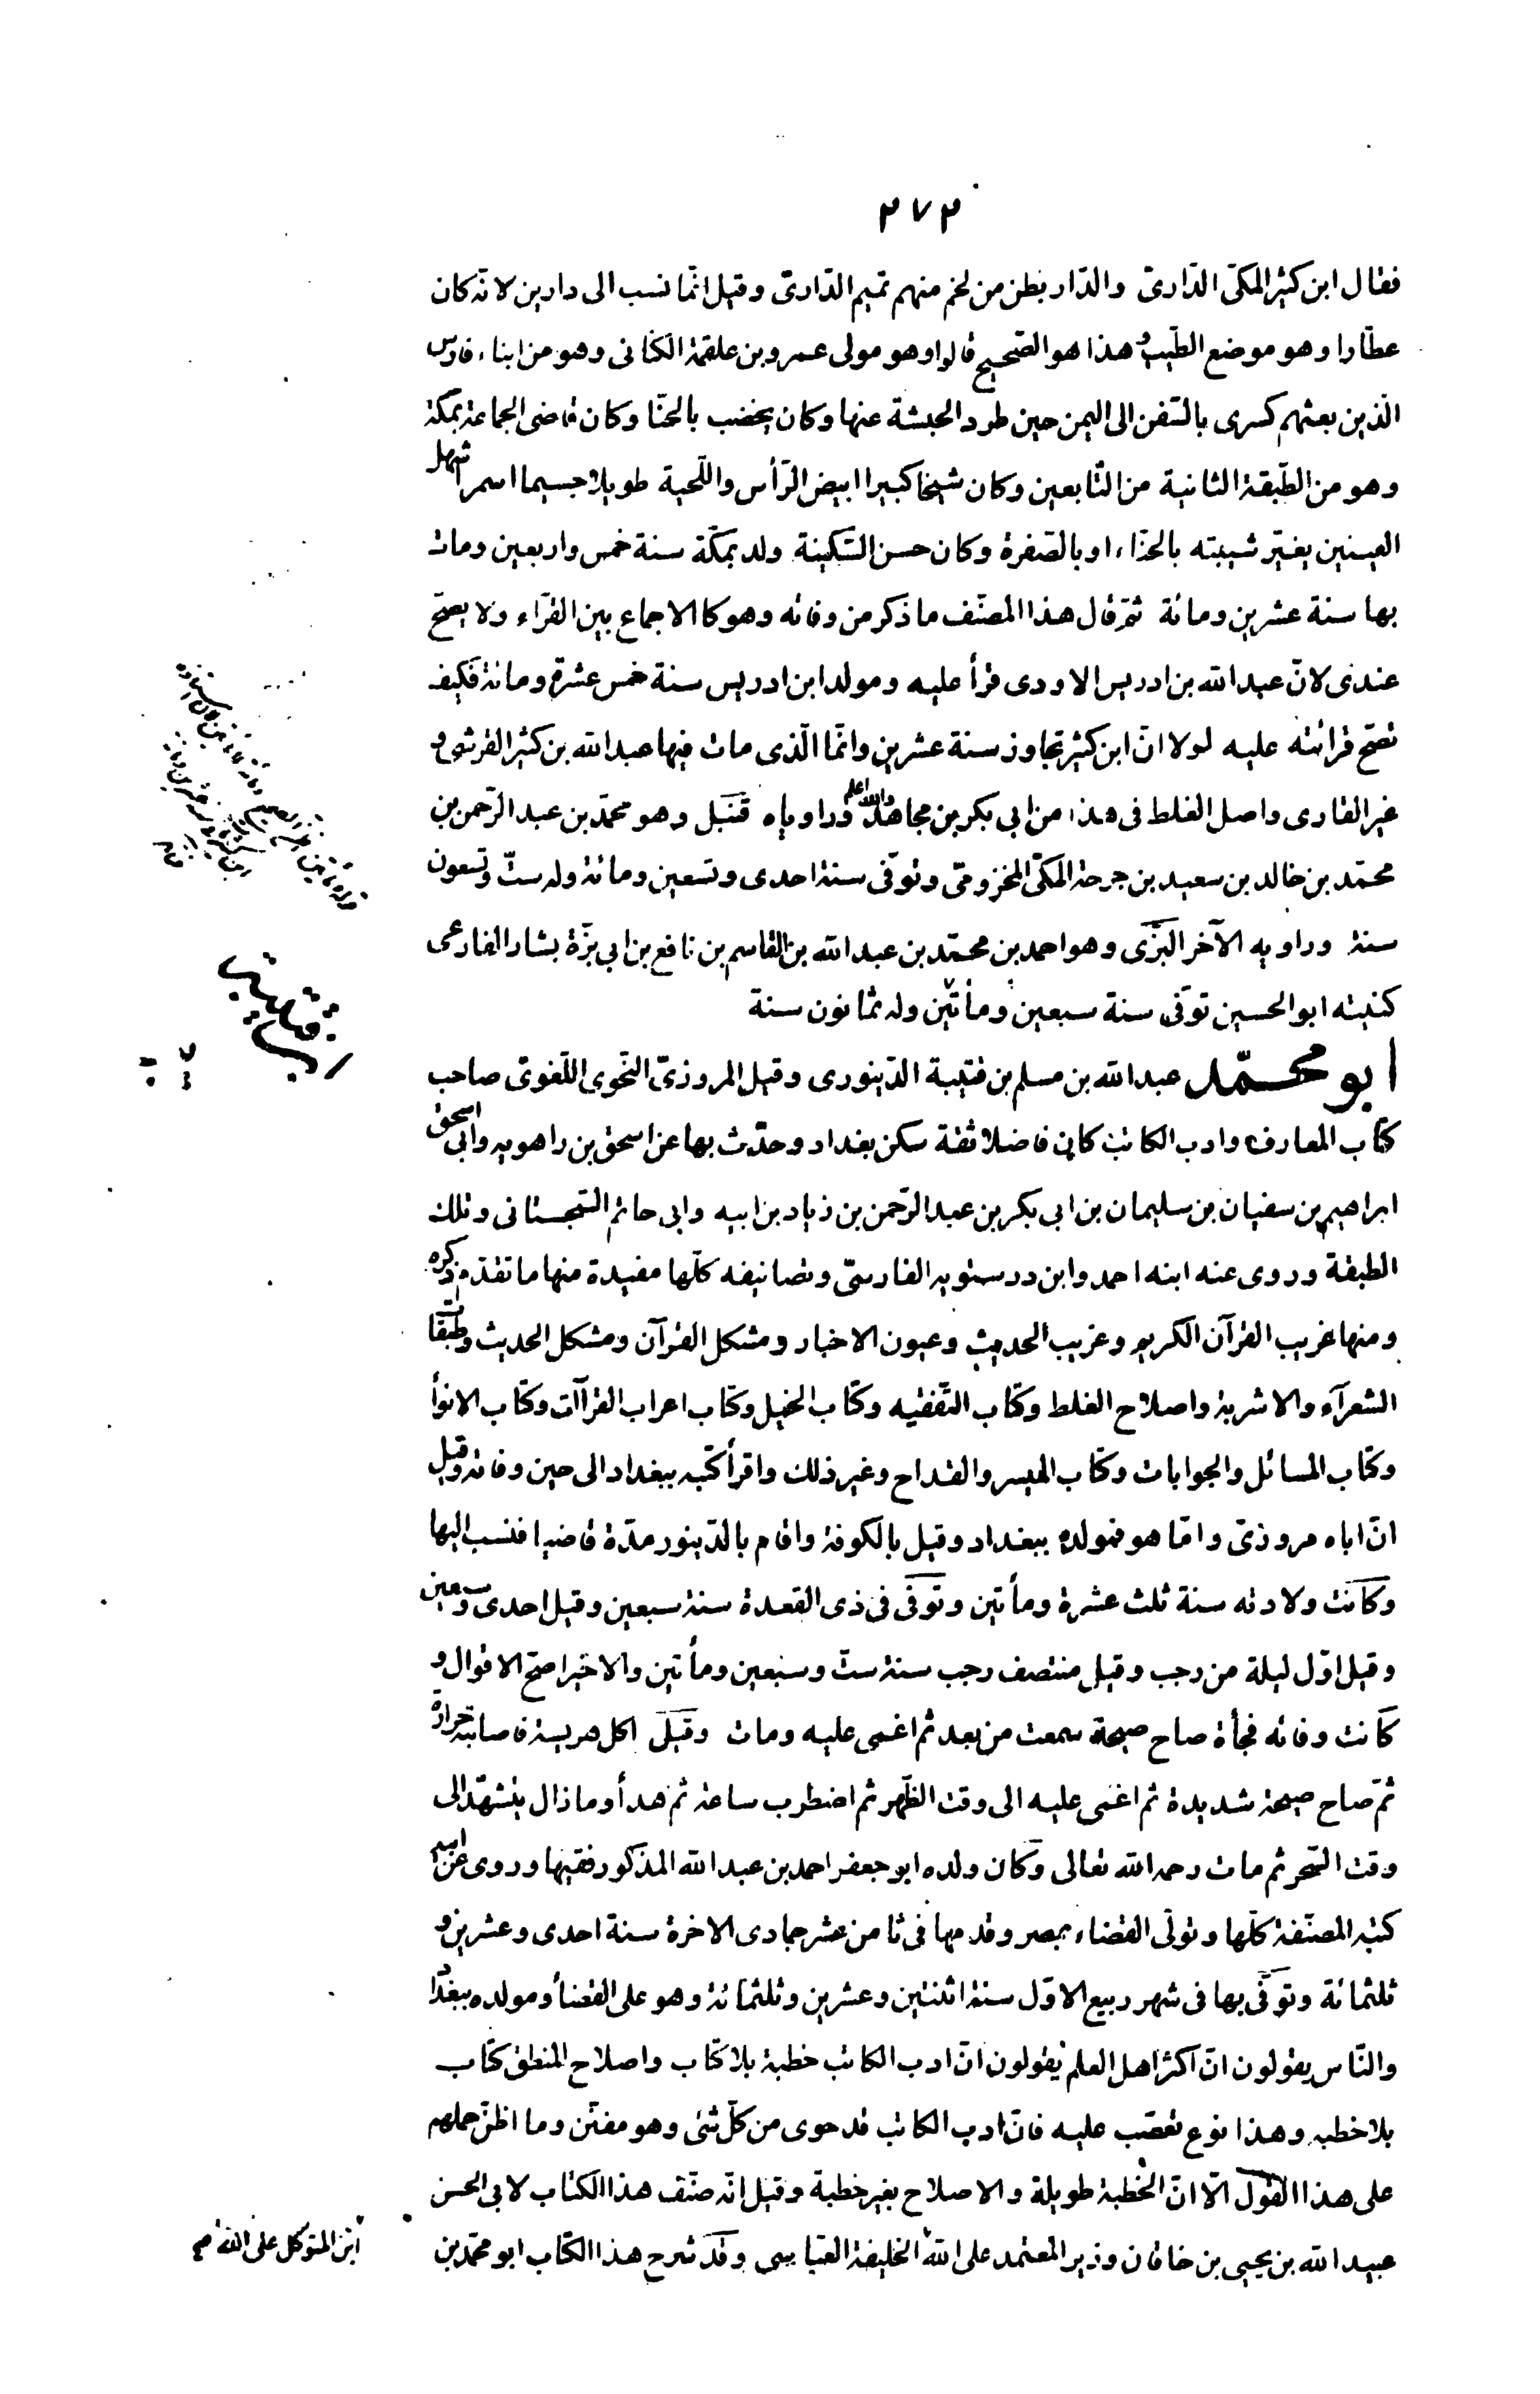 ٢٧٢
فقال ابن كثير المكىّ الدّارىّ والدّار بطن من لخم منهم تميم الدّارىّ وقيل انّما نسب الى دارين لانّه كان
عطّارا وهو موضع الطّيب وهذا هو الصّحيح قالوا وهو مولى عمرو بن علقمة الكنانى وهو من ابناء فارس
الّذين بعثهم كسرى بالسّفن الى اليمن حين طرد الحبشة عنها وكان يخضب بالحنّا وكان قاضى الجماعة بمكّة
وهو من الطّبقة الثانية من التّابعين وكان شيخا كبيرا ابيض الرّأس واللّحية طويلا جسيما اسمر اشهل
العينين يغيّر شيبته بالحنّاء او بالصّفرة وكان حسن السّكينة ولد بمكّة سنة خمس واربعين ومات
بها سنة عشرين ومائة ثمّ قال هذا المصنّف ما ذكر من وفاته وهو كالاجماع بين القرّاء ولا يصحّ
عندى لانّ عبد الله بن ادريس الاودى قرأ عليه ومولد ابن ادريس سنة خمس عشرة ومائة فكيف
تصحّ قرائته عليه لولا انّ ابن كثير تجاوز سنة عشرين وانّما الّذى مات فيها عبد الله بن كثير القرشى و
غير القارى واصل الغلط فى هذا من ابى بكر بن مجاهد والله اعلم وراوياه قنبل وهو محمّد بن عبد الرّحمن بن
محمّد بن خالد بن سعيد بن جرجة المكّى المخزومىّ وتوفّى سنة احدى وتسعين ومائة وله ستّ وتسعون
سنة وراويه الآخر البزّى وهو احمد بن محمّد بن عبد الله بن القاسم بن نافع بن ابى بزّة بشار الفارعى
كنيته ابو الحسين توفّى سنة سبعين ومأتين وله ثمانون سنة
ابو محمّد عبد الله بن مسلم بن قتيبة الدّينورى وقيل المروزىّ النّحوى اللّغوىّ صاحب
كتاب المعارف وادب الكاتب كان فاضلا ثقة سكن بغداد وحدّث بها عن اسحق بن راهويه وابى اسحق
ابراهيم بن سفيان بن سليمان بن ابى بكر بن عبد الرّحمن بن زياد بن ابيه وابى حاتم السّجستانى وتلك
الطبقة وروى عنه ابنه احمد وابن درستويه الفارسىّ وتصانيفه كلّها مفيدة منها ما تقدّم ذكره
ومنها غريب القرآن الكريم وغريب الحديث وعيون الاخبار ومشكل القرآن ومشكل الحديث وطبقات
الشعرآء والاشربة واصلاح الغلط وكتاب التّفقيه وكتاب الخيل وكتاب اعراب القراآت وكتاب الانوأ
وكتاب المسائل والجوابات وكتاب الميسر والقداح وغير ذلك واقرأ كتبه ببغداد الى حين وفاته وقيل
انّ اباه مروزىّ وامّا هو فمولده ببغداد وقيل بالكوفة واقام بالدّينور مدّة قاضيا فنسب اليها
وكانت ولادته سنة ثلث عشرة ومأتين وتوفّى فى ذى القعدة سنة سبعين وقيل احدى وسبعين
وقيل اوّل ليلة من رجب وقيل منتصف رجب سنة ستّ وسبعين ومأتين والاخير اصحّ الاقوال و
كانت وفاته فجأة صاح صيحة سمعت من بعد ثم اغمى عليه ومات وقيل اكل هريسة فاصابته حرارة
ثمّ صاح صيحة شديدة ثم اغمى عليه الى وقت الظّهر ثم اضطرب ساعة ثم هدأ وما زال يتشهّد الى
وقت السّحر ثم مات رحمه الله تعالى وكان ولده ابو جعفر احمد بن عبد الله المذكور فقيها وروى عن ابيه
كتبه المصنّفة كلّها وتولّى القضاء بمصر وقدمها فى ثامن عشر جمادى الاخرة سنة احدى وعشرين و
ثلثمائة وتوفّى بها فى شهر ربيع الاوّل سنة اثنتين وعشرين وثلثمائة وهو على القضأ ومولده ببغداد
والنّاس يقولون انّ اكثر اهل العلم يقولون انّ ادب الكاتب خطبة بلا كتاب واصلاح المنطق كتاب
بلا خطبه وهذا نوع تعصّب عليه فانّ ادب الكاتب قد حوى من كلّ شئ وهو مفنّن وما اظنّ حملهم
على هذا القول الّا انّ الخطبة طويلة والاصلاح بغير خطبة وقيل انّه صنّف هذا الكتاب لابى الحسن
عبيد الله بن يحيى بن خاقان وزير المعتمد على الله الخليفة العبّاسى وقد شرح هذا الكتاب ابو محمّد بن
ابن المتوكل على الله صح
ابن قتيبة